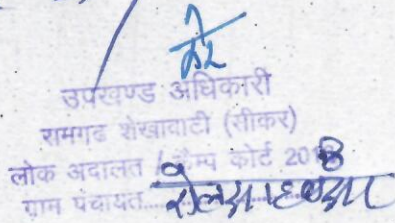 उपखण्ड अधिकारी
रामगढ शेखावाटी (सीकर)
लोक अदालत / कैम्प कोर्ट 2018
ग्राम पंचायत